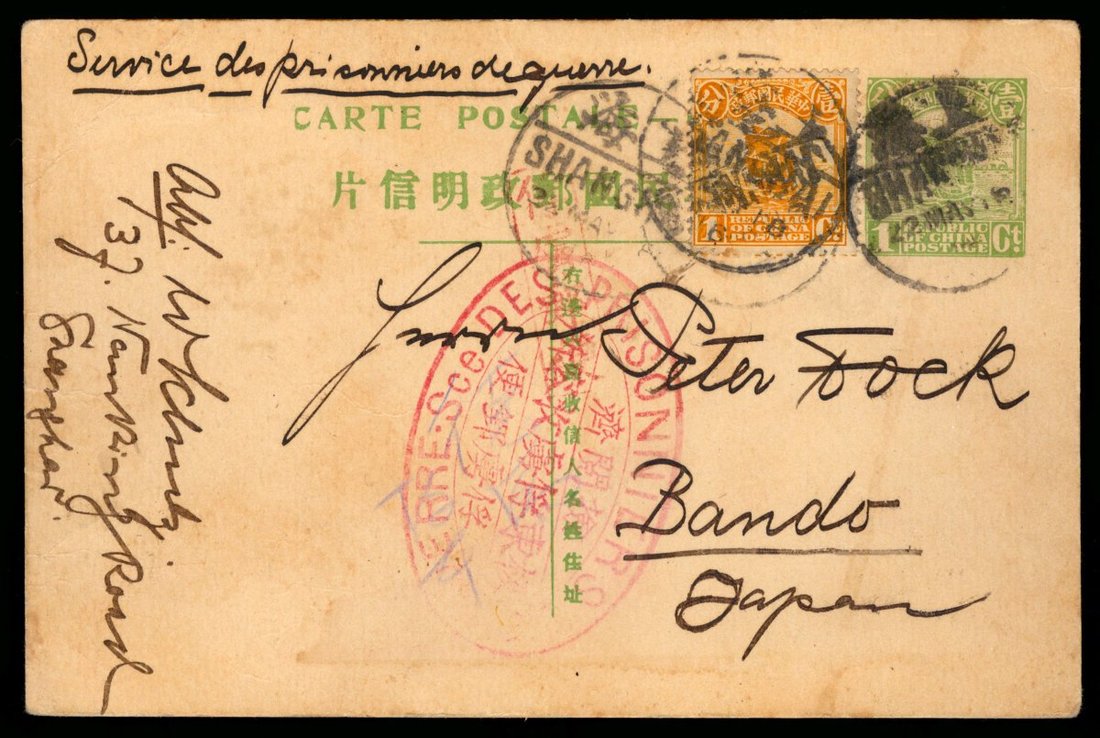 Service des prisonniers de guerre.
CARTE POSTALE
片信明政郵
分 壹
中華民國郵政
1 REPUBLIC Ct
OF CHINA
POSTAGE
壹
1 REPUBLIC Ct
OF CHINA
POSTAGE
SHANGHAI
SHANGHAI
SHANGHAI
22 MAY 18
Herrn Peter Fock
Bando
Japan
37. Nanking Road
Shanghai.
右邊 收信人名姓住址
Sce DES PRISONNIERS
閱檢濟
俘虜郵便